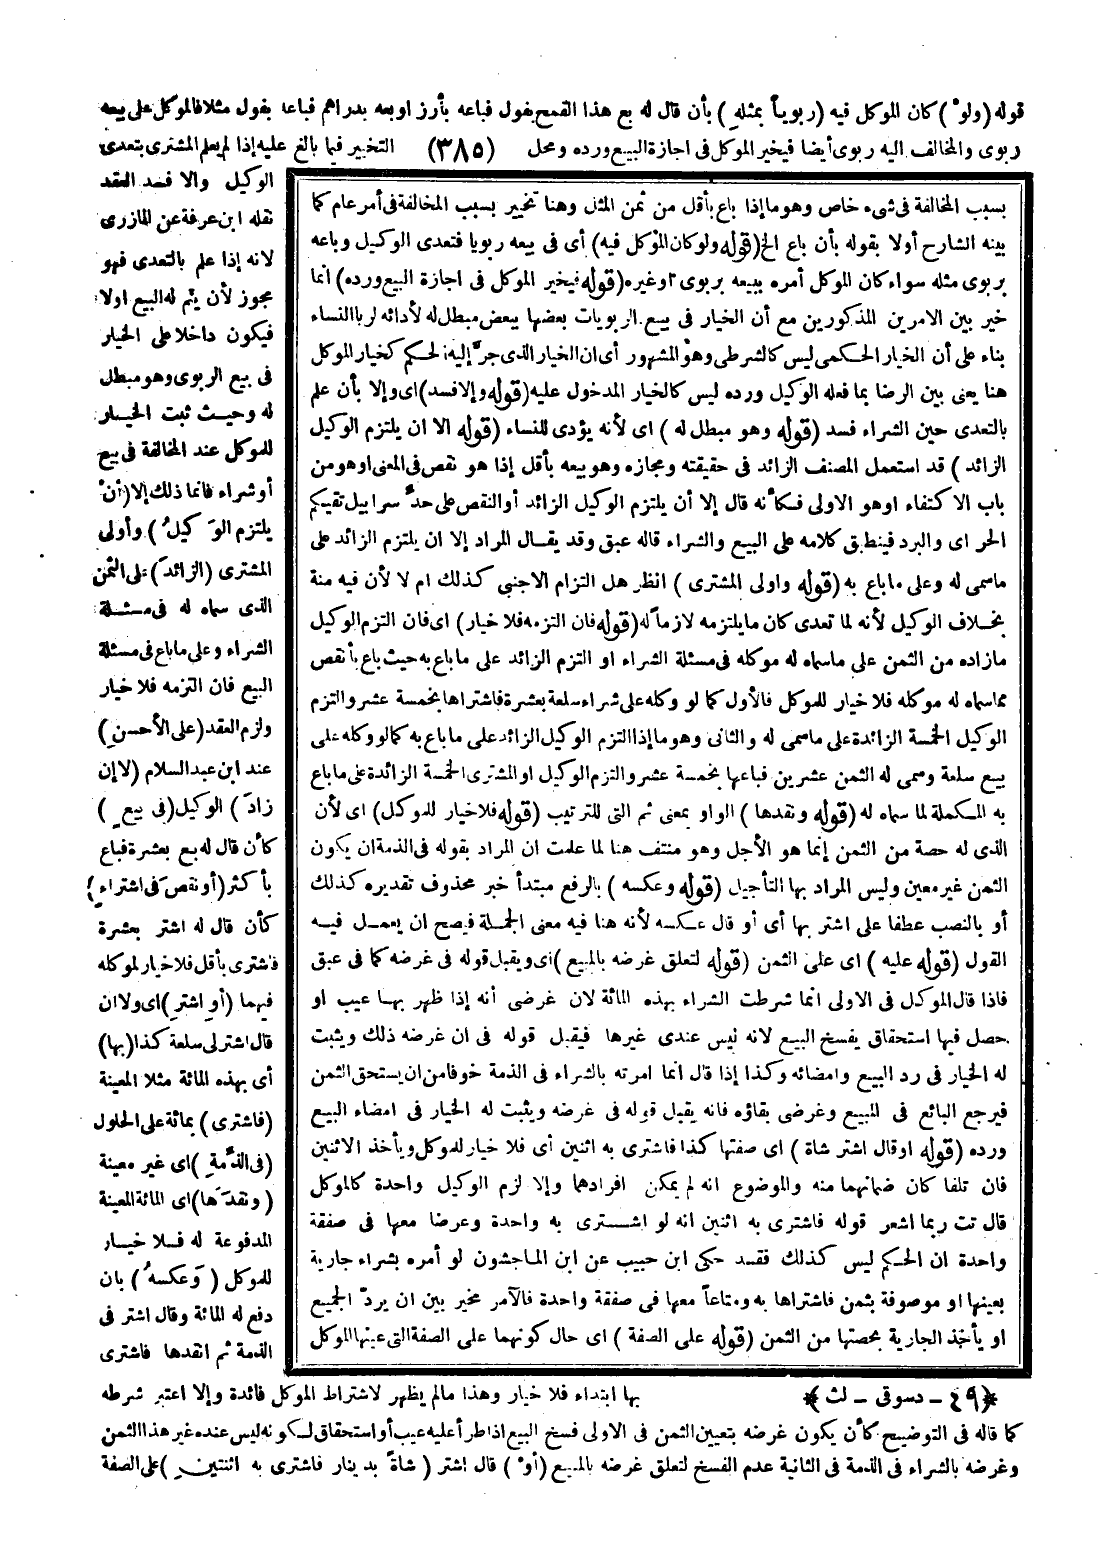 قوله (ولو) كان الموكل فيه (ربوياً بمثله) بأن قال له بع هذا القمح بفول فباعه بأرز او بعه بدراهم فباعه بفول مثلا فالموكل على بيعه
ربوى والمخالف اليه ربوى أيضا فيخير الموكل فى اجازة البيع ورده ومحل (٣٨٥) التخيير فيما بالغ عليه إذا لم يعلم المشترى بتعدى
الوكيل والا فسد العقد
نقله ابن عرفة عن المازرى
لانه إذا علم بالتعدى فهو
مجوز لأن يتم له البيع اولا
فيكون داخلا على الخيار
فى بيع الربوى وهو مبطل
له وحيث ثبت الخيار
للموكل عند المخالفة فى بيع
أو شراء فانما ذلك إلا (أنْ
يلتزم الوَكيلُ) وأولى
المشترى (الزائدَ) على الثمن
الذى سماه له فى مسئلة
الشراء وعلى ما باع فى مسئلة
البيع فان التزمه فلا خيار
ولزم العقد (على الأحسنِ)
عند ابن عبد السلام (لا إن
زادَ) الوكيل (فى بيعٍ)
كأن قال له بع بعشرة فباع
بأكثر (أو نقصَ فى اشتراءٍ)
كأن قال له اشتر بعشرة
فاشترى بأقل فلا خيار لموكله
فيهما (أو اشترِ) اى ولا ان
قال اشتر لى سلعة كذا (بها)
أى بهذه المائة مثلا المعينة
(فاشترى) بمائة على الحلول
(فى الذّمةِ) اى غير معينة
(ونقدَها) اى المائة المعينة
المدفوعة له فلا خيار
للموكل (وَعكسهُ) بان
دفع له المائة وقال اشتر فى
الذمة ثم انقدها فاشترى
بسبب المخالفة فى شىء خاص وهو ما إذا باع بأقل من ثمن المثل وهنا تخيير بسبب المخالفة فى أمر عام كما
بينه الشارح أولا بقوله بأن باع الخ (قوله ولو كان الموكل فيه) أى فى بيعه ربويا فتعدى الوكيل وباعه
بربوى مثله سواء كان الموكل أمره ببيعه بربوى او غيره (قوله فيخير الموكل فى اجازة البيع ورده) انما
خير بين الامرين المذكورين مع أن الخيار فى بيع الربويات بعضها ببعض مبطل له لأدائه لربا النساء
بناء على أن الخيار الحكمى ليس كالشرطى وهو المشهور أى ان الخيار الذى جرّ إليه الحكم كخيار الموكل
هنا يعنى بين الرضا بما فعله الوكيل ورده ليس كالخيار المدخول عليه (قوله وإلا فسد) اى وإلا بأن علم
بالتعدى حين الشراء فسد (قوله وهو مبطل له) اى لأنه يؤدى للنساء (قوله الا ان يلتزم الوكيل
الزائد) قد استعمل المصنف الزائد فى حقيقته ومجازه وهو بيعه بأقل إذا هو نقص فى المعنى اوهو من
باب الاكتفاء اوهو الاولى فكأنه قال إلا أن يلتزم الوكيل الزائد أو النقص على حدّ سرابيل تقيكم
الحر اى والبرد فينطبق كلامه على البيع والشراء قاله عبق وقد يقال المراد إلا ان يلتزم الزائد على
ماسمى له وعلى ماباع به (قوله واولى المشترى) انظر هل التزام الاجنبى كذلك ام لا لأن فيه منة
بخلاف الوكيل لأنه لما تعدى كان ما يلتزمه لازماً له (قوله فان التزمه فلا خيار) اى فان التزم الوكيل
مازاده من الثمن على ماسماه له موكله فى مسئلة الشراء او التزم الزائد على ماباع به حيث باع بأنقص
مماسماه له موكله فلا خيار للموكل فالأول كما لو وكله على شراء سلعة بعشرة فاشتراها بخمسة عشر والتزم
الوكيل الخمسة الزائدة على ماسمى له والثانى وهو ما إذا التزم الوكيل الزائد على ماباع به كما لو وكله على
بيع سلعة وسمى له الثمن عشرين فباعها بخمسة عشر والتزم الوكيل او المشترى الخمسة الزائدة على ماباع
به المكملة لما سماه له (قوله ونقدها) الواو بمعنى ثم التى للترتيب (قوله فلا خيار للموكل) اى لأن
الذى له حصة من الثمن إنما هو الأجل وهو منتف هنا لما علمت ان المراد بقوله فى الذمة ان يكون
الثمن غير معين وليس المراد بها التأجيل (قوله وعكسه) بالرفع مبتدأ خبر محذوف تقديره كذلك
أو بالنصب عطفا على اشتر بها أى أو قال عكسه لأنه هنا فيه معنى الجملة فيصح ان يعمل فيه
القول (قوله عليه) اى على الثمن (قوله لتعلق غرضه بالمبيع) اى ويقبل قوله فى غرضه كما فى عبق
فاذا قال الموكل فى الاولى انما شرطت الشراء بهذه المائة لان غرضى أنه إذا ظهر بها عيب او
حصل فيها استحقاق يفسخ البيع لانه ليس عندى غيرها فيقبل قوله فى ان غرضه ذلك ويثبت
له الخيار فى رد البيع وامضائه وكذا إذا قال انما امرته بالشراء فى الذمة خوفا من ان يستحق الثمن
فيرجع البائع فى المبيع وغرضى بقاؤه فانه يقبل قوله فى غرضه ويثبت له الخيار فى امضاء البيع
ورده (قوله اوقال اشتر شاة) اى صفتها كذا فاشترى به اثنين أى فلا خيار للموكل ويأخذ الاثنين
فان تلفا كان ضمانهما منه والموضوع انه لم يمكن افرادهما وإلا لزم الوكيل واحدة كالموكل
قال تت ربما اشعر قوله فاشترى به اثنين انه لو اشترى به واحدة وعرضا معها فى صفقة
واحدة ان الحكم ليس كذلك فقد حكى ابن حبيب عن ابن الماجشون لو أمره بشراء جارية
بعينها او موصوفة بثمن فاشتراها به ومتاعاً معها فى صفقة واحدة فالآمر مخير بين ان يردّ الجميع
او يأخذ الجارية بحصتها من الثمن (قوله على الصفة) اى حال كونهما على الصفة التى عينها الموكل
﴿٤٩ – دسوقى – لث﴾ بها ابتداء فلا خيار وهذا مالم يظهر لاشتراط الموكل فائدة وإلا اعتبر شرطه
كما قاله فى التوضيح كأن يكون غرضه بتعيين الثمن فى الاولى فسخ البيع اذا طرأ عليه عيب أو استحقاق لكونه ليس عنده غير هذا الثمن
وغرضه بالشراء فى الذمة فى الثانية عدم الفسخ لتعلق غرضه بالمبيع (أوْ) قال اشتر (شاةً بدينار فاشترى به اثنتينِ) على الصفة